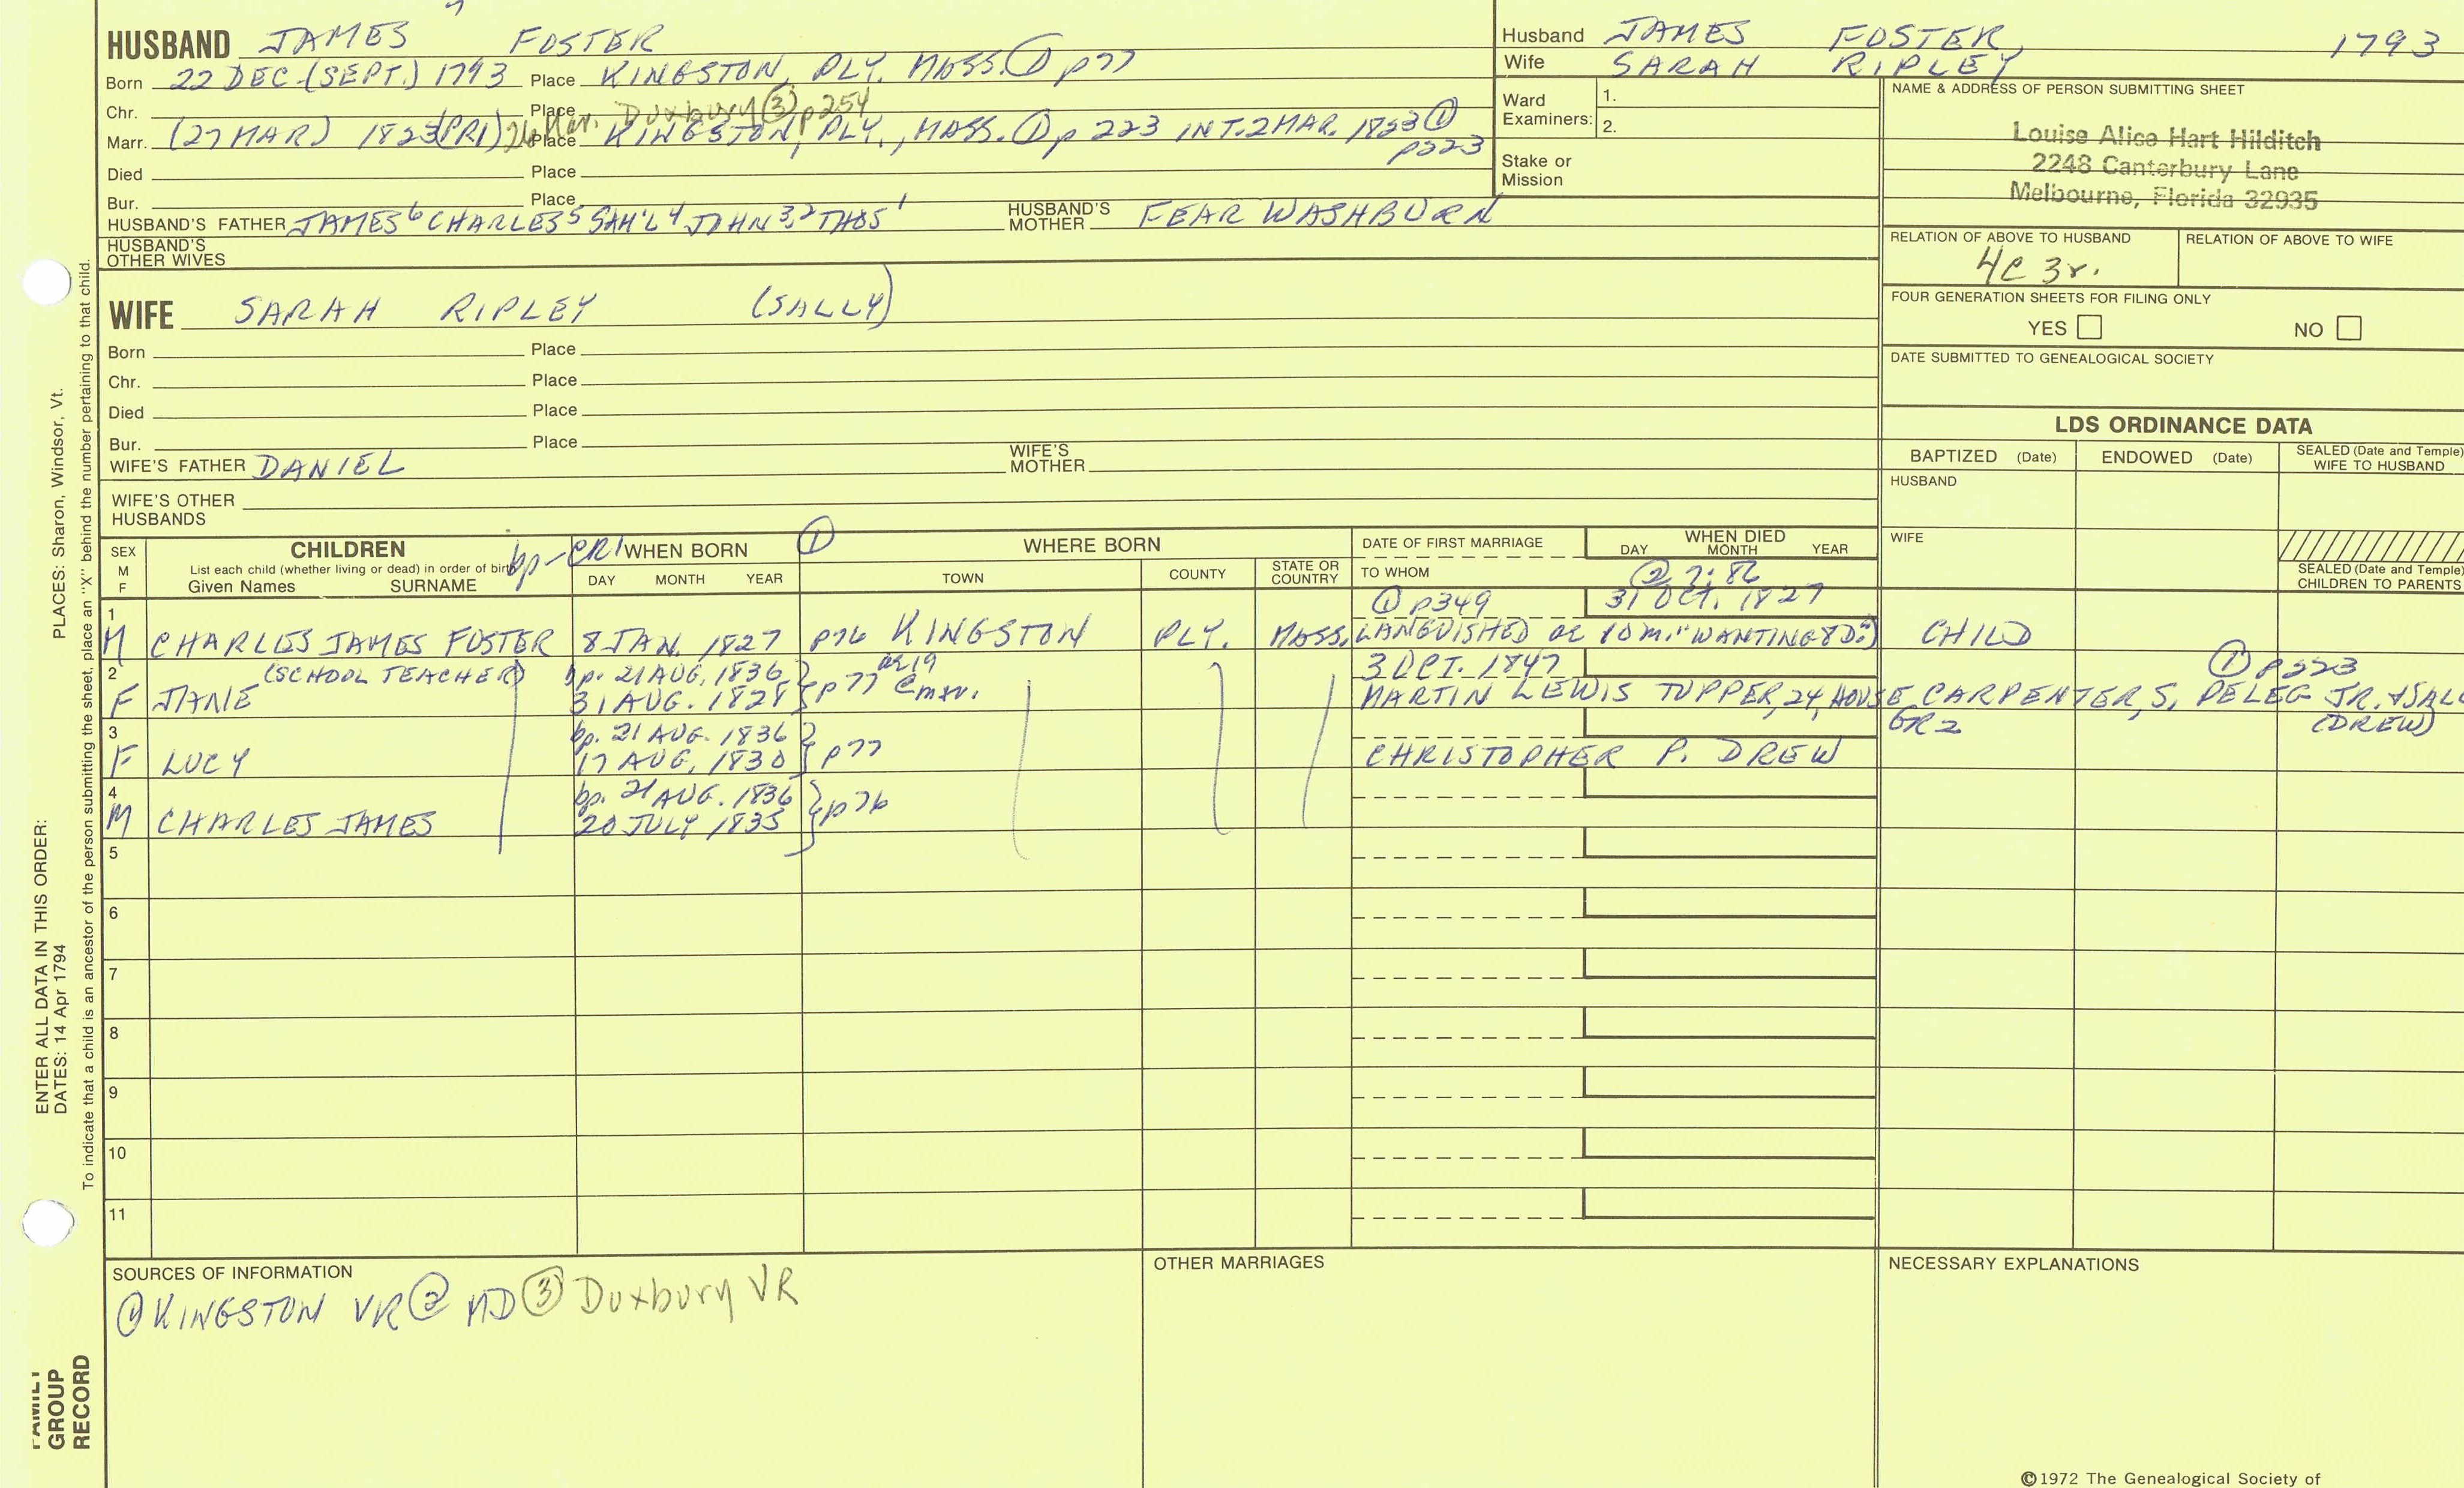 HUSBAND JAMES FOSTER
Born 22 DEC (SEPT.) 1793 Place KINGSTON, PLY. MASS. ① p77
Chr. Place Duxbury ③ p254
Marr. (27 MAR) 1823 (PR1) 26 Mar. Place KINGSTON, PLY., MASS. ① p 223 INT. 2 MAR. 1823 ① p223
Died Place
Bur. Place
HUSBAND'S FATHER JAMES⁶ CHARLES⁵ SAM'L⁴ JOHN³,² THOS¹ HUSBAND'S MOTHER FEAR WASHBURN
HUSBAND'S OTHER WIVES
WIFE SARAH RIPLEY (SALLY)
Born Place
Chr. Place
Died Place
Bur. Place
WIFE'S FATHER DANIEL WIFE'S MOTHER
WIFE'S OTHER HUSBANDS
Husband JAMES FOSTER, 1793
Wife SARAH RIPLEY
Ward Examiners: 1. 2.
Stake or Mission
NAME & ADDRESS OF PERSON SUBMITTING SHEET
Louise Alice Hart Hilditch
2248 Canterbury Lane
Melbourne, Florida 32935
RELATION OF ABOVE TO HUSBAND RELATION OF ABOVE TO WIFE
4C 3r.
FOUR GENERATION SHEETS FOR FILING ONLY
YES NO
DATE SUBMITTED TO GENEALOGICAL SOCIETY
LDS ORDINANCE DATA
BAPTIZED (Date) ENDOWED (Date) SEALED (Date and Temple) WIFE TO HUSBAND
HUSBAND
WIFE
SEALED (Date and Temple) CHILDREN TO PARENTS
SEX M F CHILDREN bp-CR1 WHEN BORN ① WHERE BORN DATE OF FIRST MARRIAGE WHEN DIED
List each child (whether living or dead) in order of birth
Given Names SURNAME DAY MONTH YEAR TOWN COUNTY STATE OR COUNTRY TO WHOM DAY MONTH YEAR
② 7:86
1 ① p349 31 OCT. 1827
M CHARLES JAMES FOSTER 8 JAN. 1827 p76 KINGSTON PLY. MASS. LANGUISHED ae 10 m. "WANTING 8 D." CHILD
2 (SCHOOL TEACHER) bp. 21 AUG. 1836 ae 19 3 OCT. 1847 ① p223
F JANE 31 AUG. 1828 p77 @marr. MARTIN LEWIS TUPPER, 24, HOUSE CARPENTER, S. PELEG JR. & SALL
GR2 (DREW)
3 bp. 21 AUG. 1836
F LUCY 17 AUG. 1830 p77 CHRISTOPHER P. DREW
4 bp. 21 AUG. 1836
M CHARLES JAMES 20 JULY 1835 p76
5
6
7
8
9
10
11
SOURCES OF INFORMATION OTHER MARRIAGES NECESSARY EXPLANATIONS
① KINGSTON VR ② MD ③ Duxbury VR
©1972 The Genealogical Society of
PLACES: Sharon, Windsor, Vt.
ENTER ALL DATA IN THIS ORDER:
DATES: 14 Apr 1794
To indicate that a child is an ancestor of the person submitting the sheet, place an "X" behind the number pertaining to that child.
FAMILY GROUP RECORD